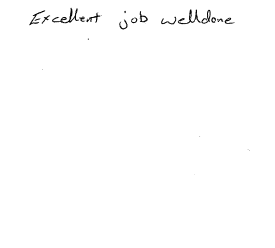 Excellent job welldone